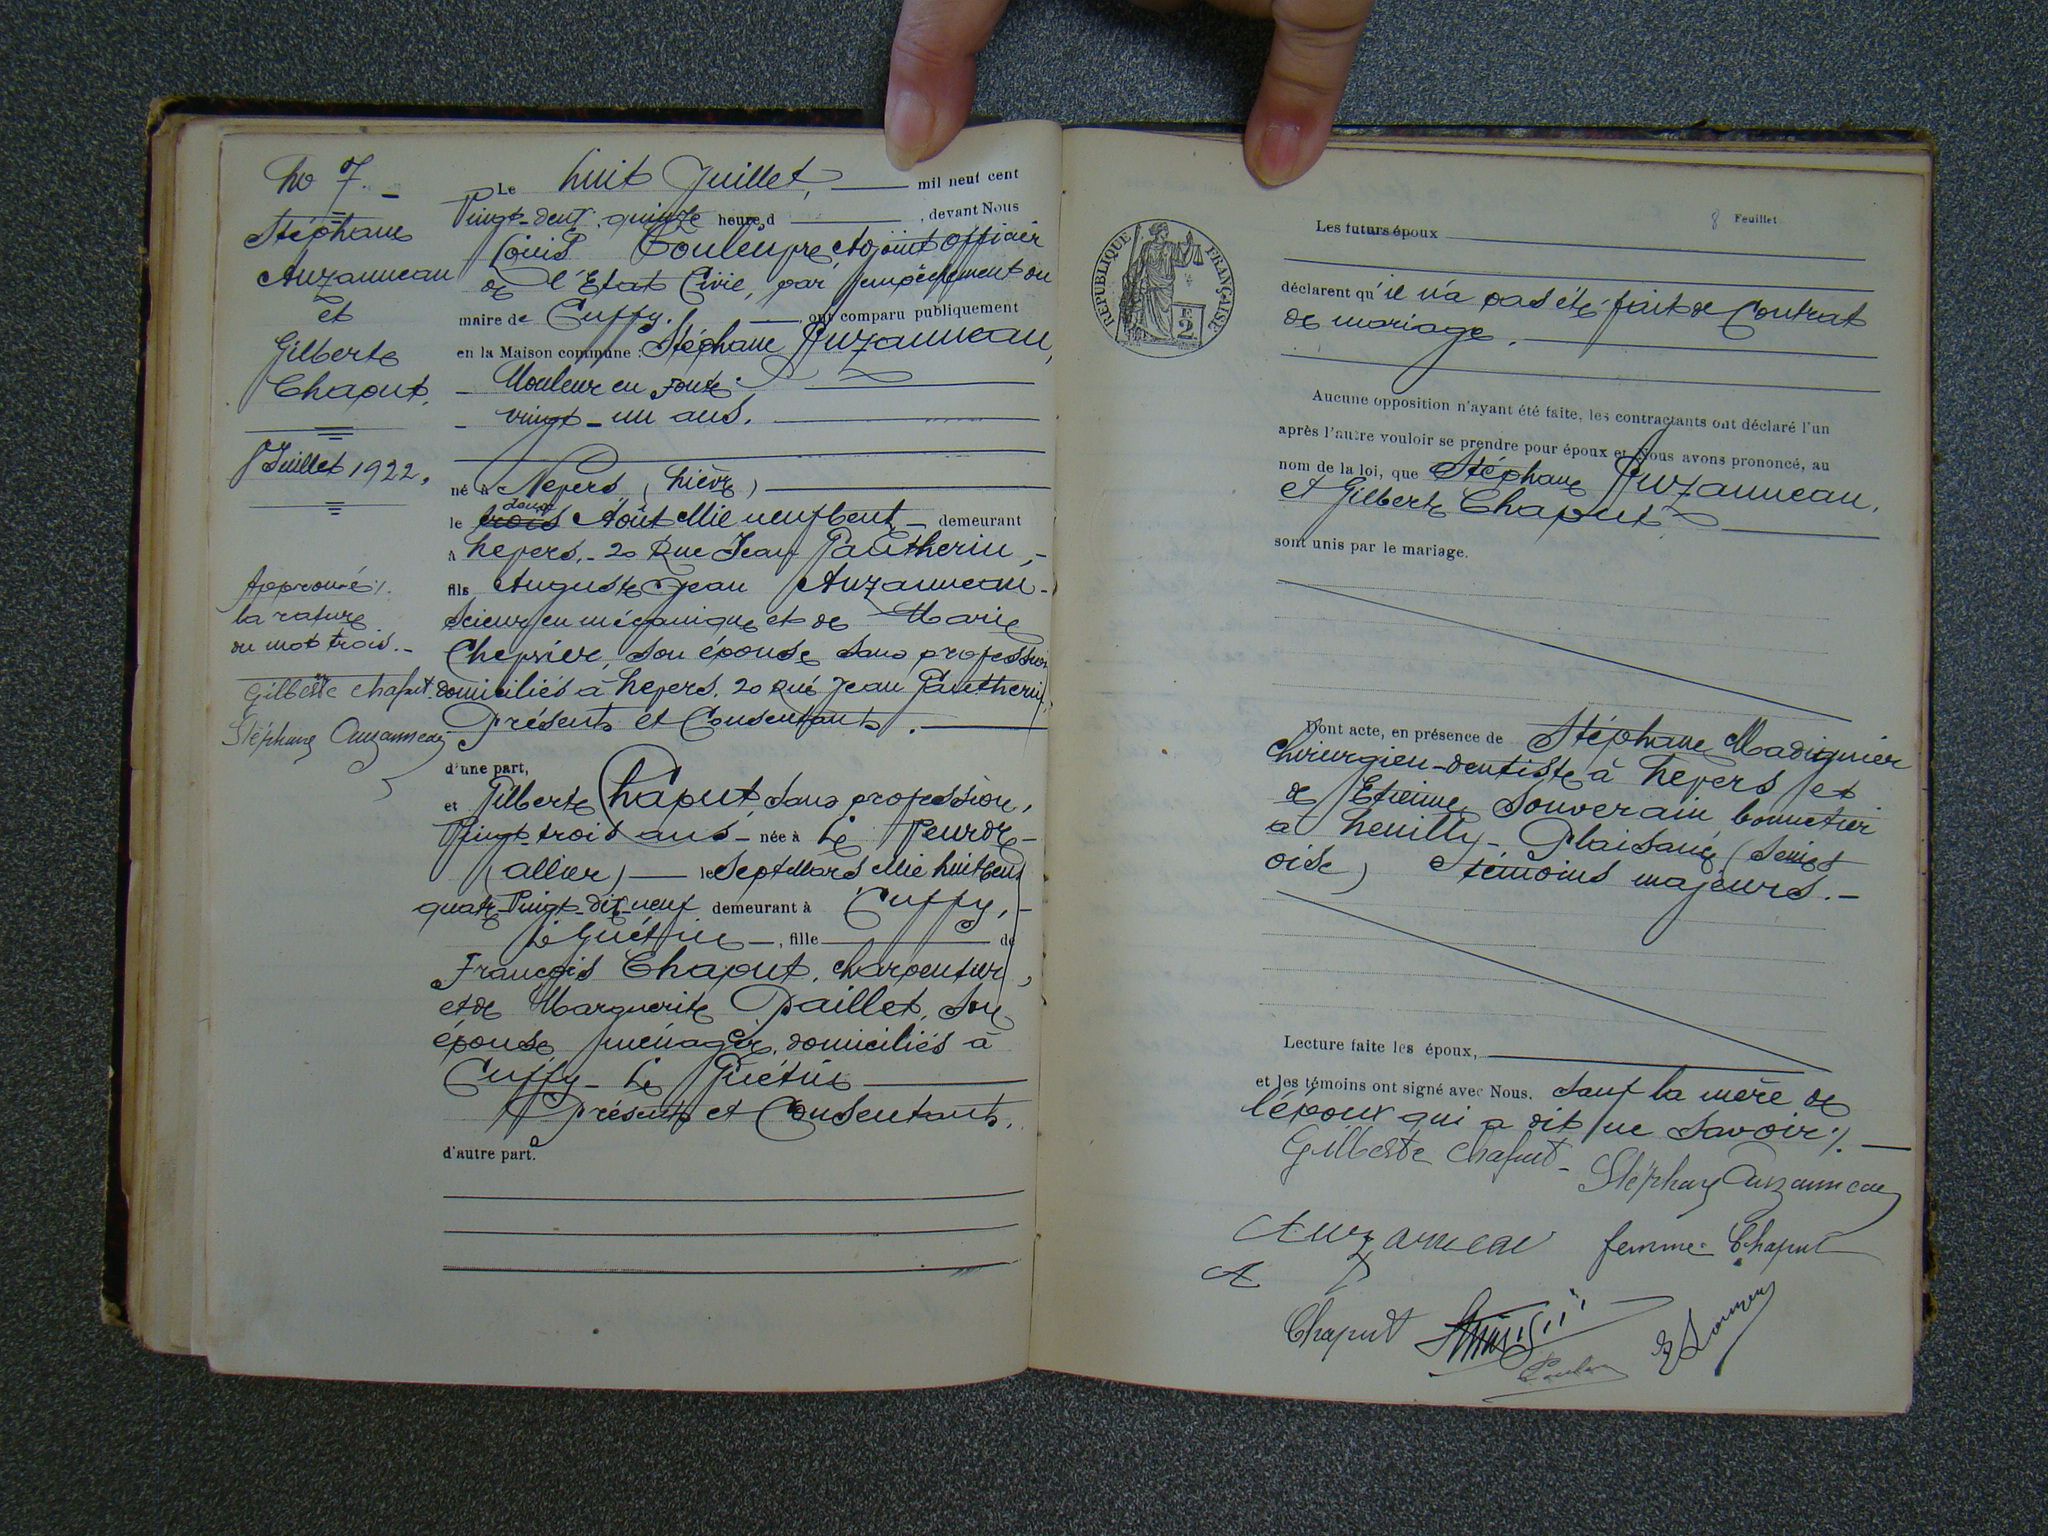 No 7. -
Stéphane
Auzanneau
et
Gilberte
Chaput.
8 Juillet 1922.
Approuvé /.
la rature
du mot trois. -
Gilberte Chaput.
Stéphane Auzanneau
Le huit Juillet, mil neuf cent
Vingt-deux quinze heure d , devant Nous
Louis Couleupre, Adjoint officier
de l'Etat Civil, par empêchement du
maire de Cuffy. , ont comparu publiquement
en la Maison commune : Stéphane Auzanneau,
Mouleur en Fonte.
vingt-un ans.
né à Nevers (Nièvre)
le trois douze Août Mil neuf cent - demeurant
à Nevers, - 20 Rue Jean Pautherin, -
fils Auguste Jean Auzanneau, -
Scieur en mécanique et de Marie
Chevrier, son épouse sans profession
domiciliés à Nevers. 20 Rue Jean Pautherin,
Présents et Consentants.
d'une part,
et Gilberte Chaput, sans profession,
Vingt-trois ans - née à Le Veurdre -
(allier) - le Sept Mars Mil huit cent
quatre-Vingt-dix-neuf demeurant à Cuffy, -
Le Guétin -, fille de
François Chaput, charpentier,
et de Marguerite Paillet, son
épouse, ménagère, domiciliés à
Cuffy - Le Guétin
Présents et Consentants.
d'autre part.
8 Feuillet
RÉPUBLIQUE FRANÇAISE
2 F
Les futurs époux
déclarent qu'il n'a pas été fait de Contrat
de mariage.
Aucune opposition n'ayant été faite, les contractants ont déclaré l'un
après l'autre vouloir se prendre pour époux et Nous avons prononcé, au
nom de la loi, que Stéphane Auzanneau,
et Gilberte Chaput
sont unis par le mariage.
Dont acte, en présence de Stéphane Madignier
Chirurgien-dentiste à Nevers et
de Etienne Souverain bonnetier
à Neuilly-Plaisance (Seine et
oise) témoins majeurs. -
Lecture faite les époux,
et les témoins ont signé avec Nous. Sauf la mère de
l'époux qui a dit ne savoir /.
Gilberte Chaput - Stéphane Auzanneau
Auzanneau femme Chaput
A
Chaput